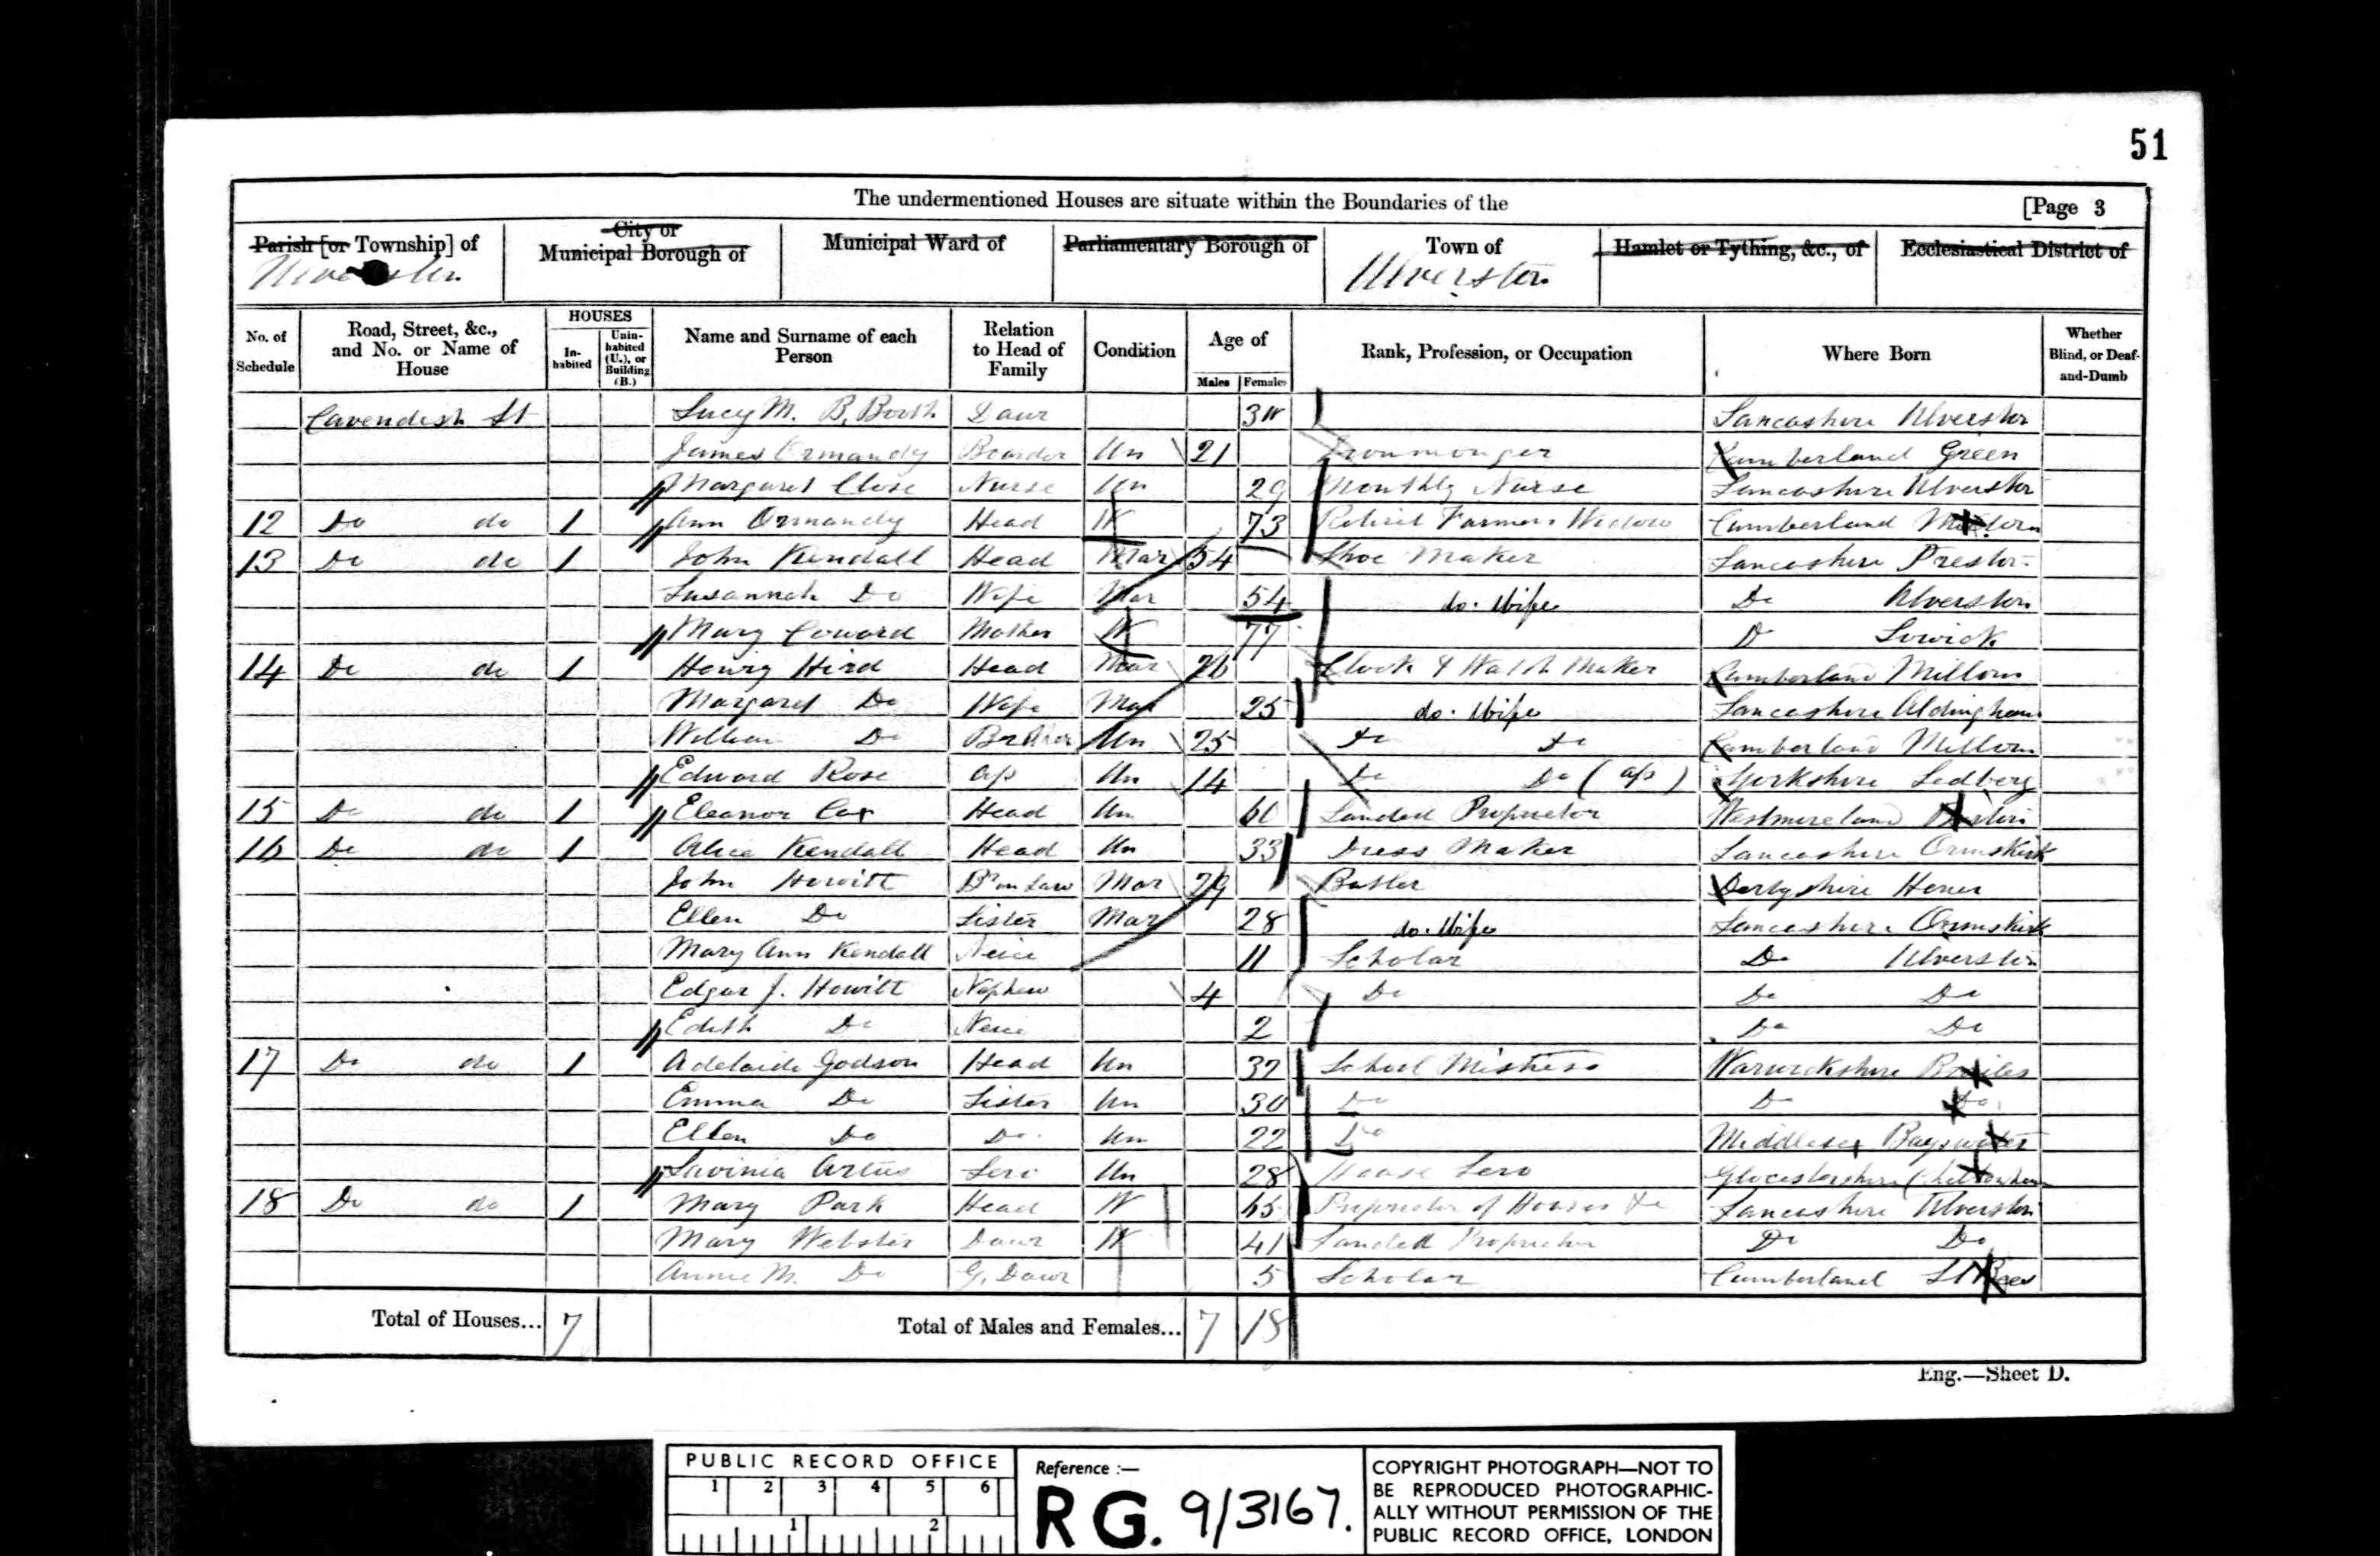 51
The undermentioned Houses are situate within the Boundaries of the [Page 3
Parish [or Township] of City or Municipal Borough of Municipal Ward of Parliamentary Borough of Town of Hamlet or Tything, &c., of Ecclesiastical District of
Ulverston Ulverston
No. of Schedule Road, Street, &c., and No. or Name of House HOUSES Inhabited Uninhabited (U.), or Building (B.) Name and Surname of each Person Relation to Head of Family Condition Age of Males Females Rank, Profession, or Occupation Where Born Whether Blind, or Deaf-and-Dumb
Cavendish St Lucy M. B. Booth Daur Lancashire Ulverston
James Ormandy Boarder Un 21 Ironmonger Cumberland Green
Margaret Close Nurse Un 29 Monthly Nurse Lancashire Ulverston
12 Do do 1 Ann Ormandy Head W 73 Retired Farmers Widow Cumberland
13 Do do 1 John Kendall Head Mar 54 Shoe Maker Lancashire Preston
Susannah Do Wife Mar 54 do. Wife Do Ulverston
Mary Coward Mother W 77 D Lowick
14 Do do 1 Henry Hird Head Mar 26 Clock & Watch Maker Cumberland Millom
Margaret Do Wife Mar 25 do. Wife Lancashire Aldingham
William Do Brother Un 25 Do Do Cumberland Millom
Edward Rose ap Un 14 Do Do (ap) Yorkshire Sedberg
15 Do do 1 Eleanor Cox Head Un 60 Landed Proprietor Westmoreland
16 Do do 1 Alice Kendall Head Un 33 Dress Maker Lancashire Ormskirk
John Howitt Br in Law Mar 29 Butler Derbyshire Henor
Ellen Do Sister Mar 28 do. Wife Lancashire Ormskirk
Mary Ann Kendall Neice 11 Scholar Do Ulverston
Edgar J. Howitt Nephew 4 Do Do Do
Edith Do Neice 2 Do Do
17 Do do 1 Adelaide Godson Head Un 32 School Mistress Warwickshire
Emma Do Sister Un 30 Do D Do
Ellen Do Do. Un 22 Do Middlesex Bayswater
Lavinia Artus Serv Un 28 House Serv Glocestershire Cheltenham
18 Do do 1 Mary Park Head W 65 Proprietor of Houses &c Lancashire Ulverston
Mary Webster Daur W 41 Landed Proprietor Do Do
Annie M. Do G. Daur 5 Scholar Cumberland St Bees
Total of Houses... 7 Total of Males and Females... 7 18
Eng.—Sheet D.
PUBLIC RECORD OFFICE
1 2 3 4 5 6
1 2
Reference :—
RG. 9/3167.
COPYRIGHT PHOTOGRAPH—NOT TO
BE REPRODUCED PHOTOGRAPHIC-
ALLY WITHOUT PERMISSION OF THE
PUBLIC RECORD OFFICE, LONDON